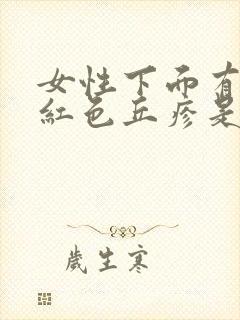 女性下面有
紅色丘疹是
歲生寒